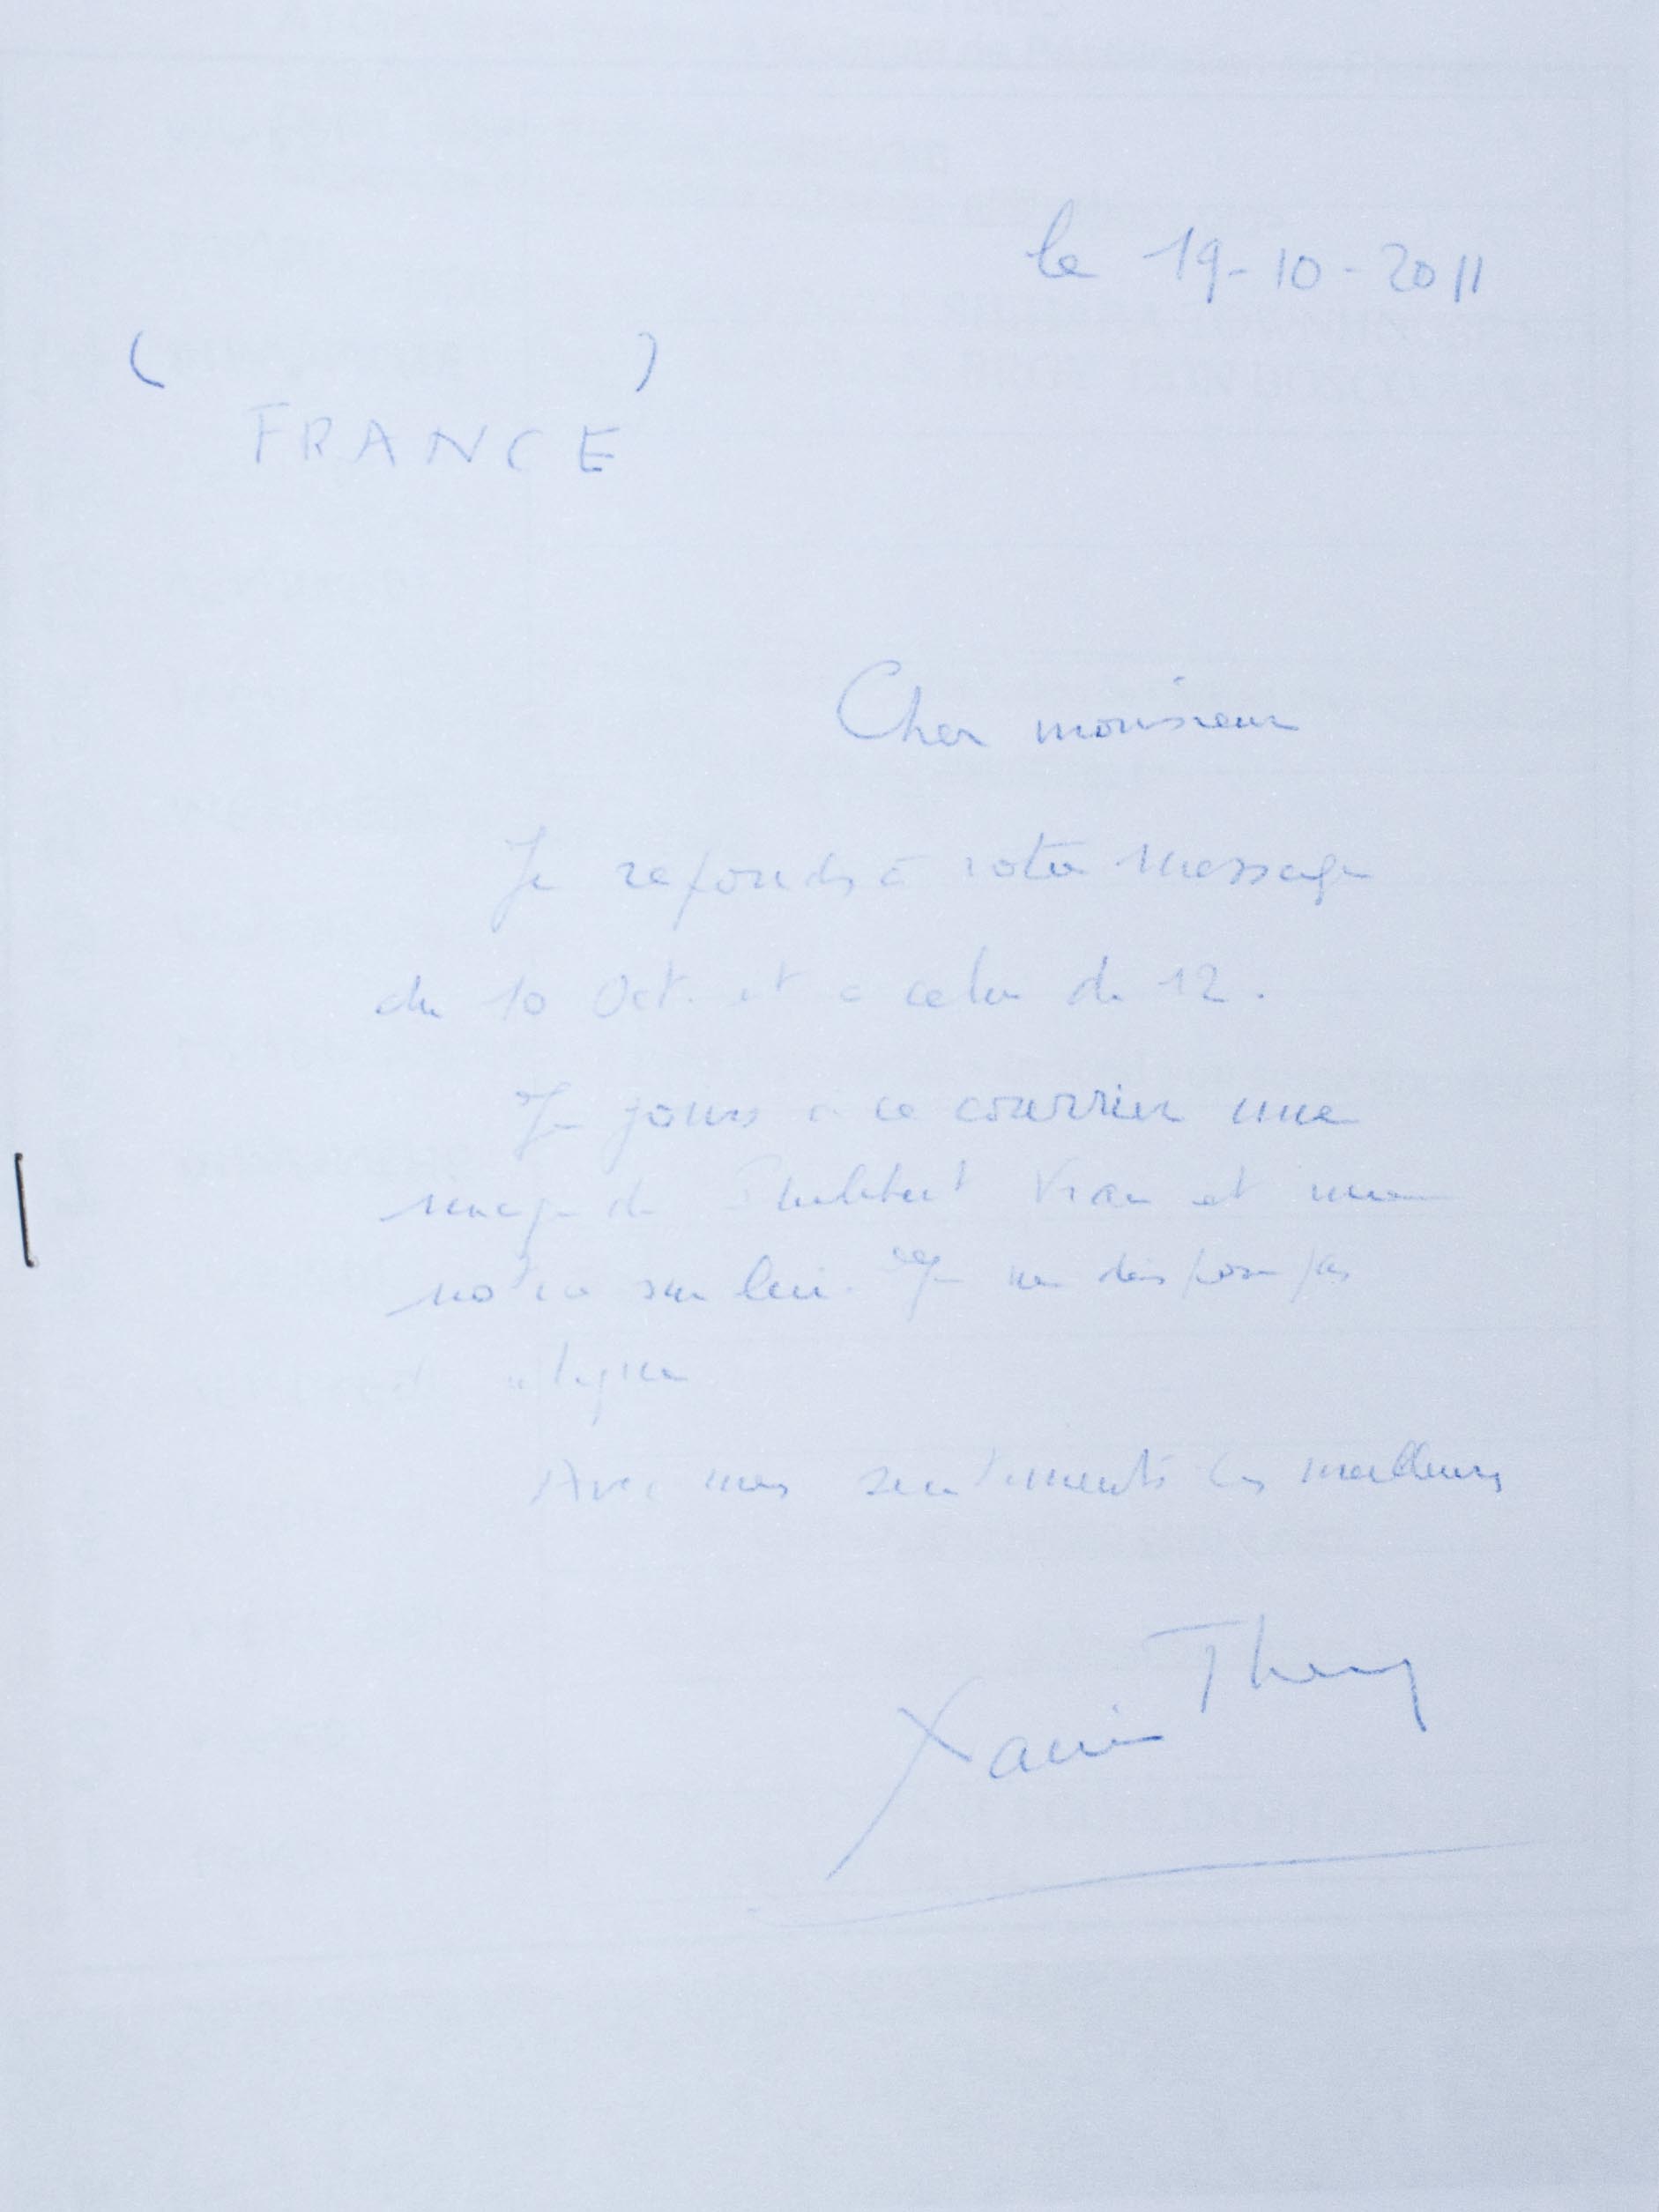 le 19-10-2011
( )
FRANCE
Cher monsieur
Je reponds à votre message
du 10 Oct. et à celui du 12.
Je joins à ce courrier une
image de Philibert Vrau et une
notice sur lui. Je ne dispose pas
Avec mes sentiments les meilleurs
Xavier Thery